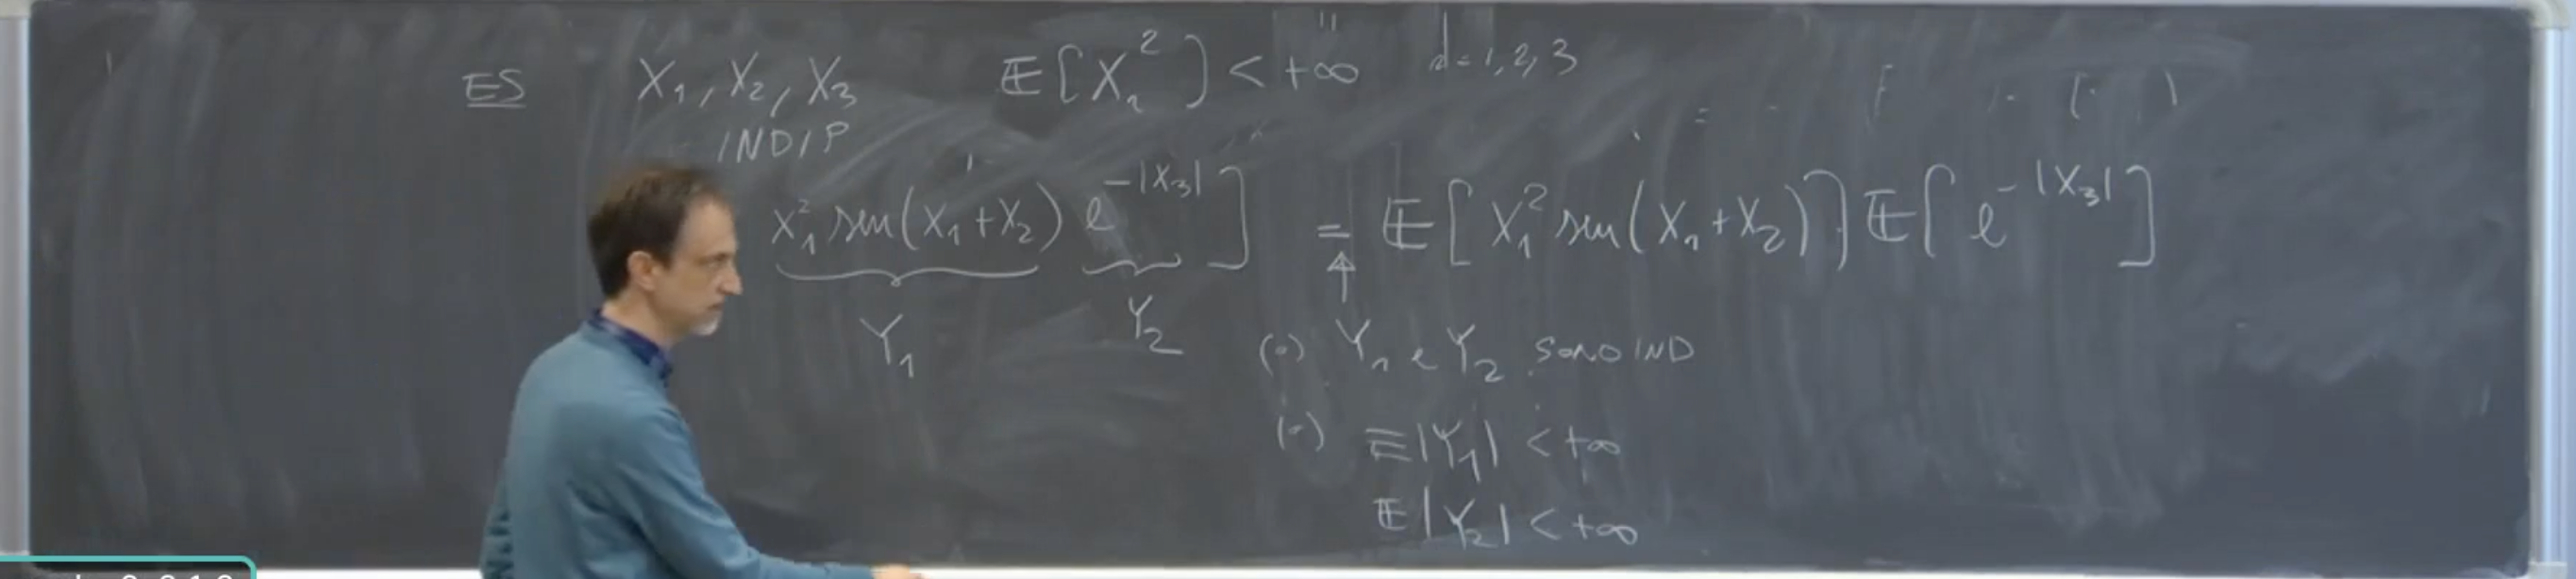 ES X₁, X₂, X₃ 𝔼[X₁²] < +∞ d=1,2,3
INDIP
X₁² sen(X₁+X₂) e^{-|X₃|} ] = 𝔼[X₁² sen(X₁+X₂)] 𝔼[e^{-|X₃|}]
Y₁ Y₂
(•) Y₁ e Y₂ SONO IND
(•) 𝔼|Y₁| < +∞
𝔼|Y₂| < +∞